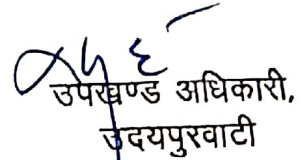 उपखण्ड अधिकारी,
उदयपुरवाटी